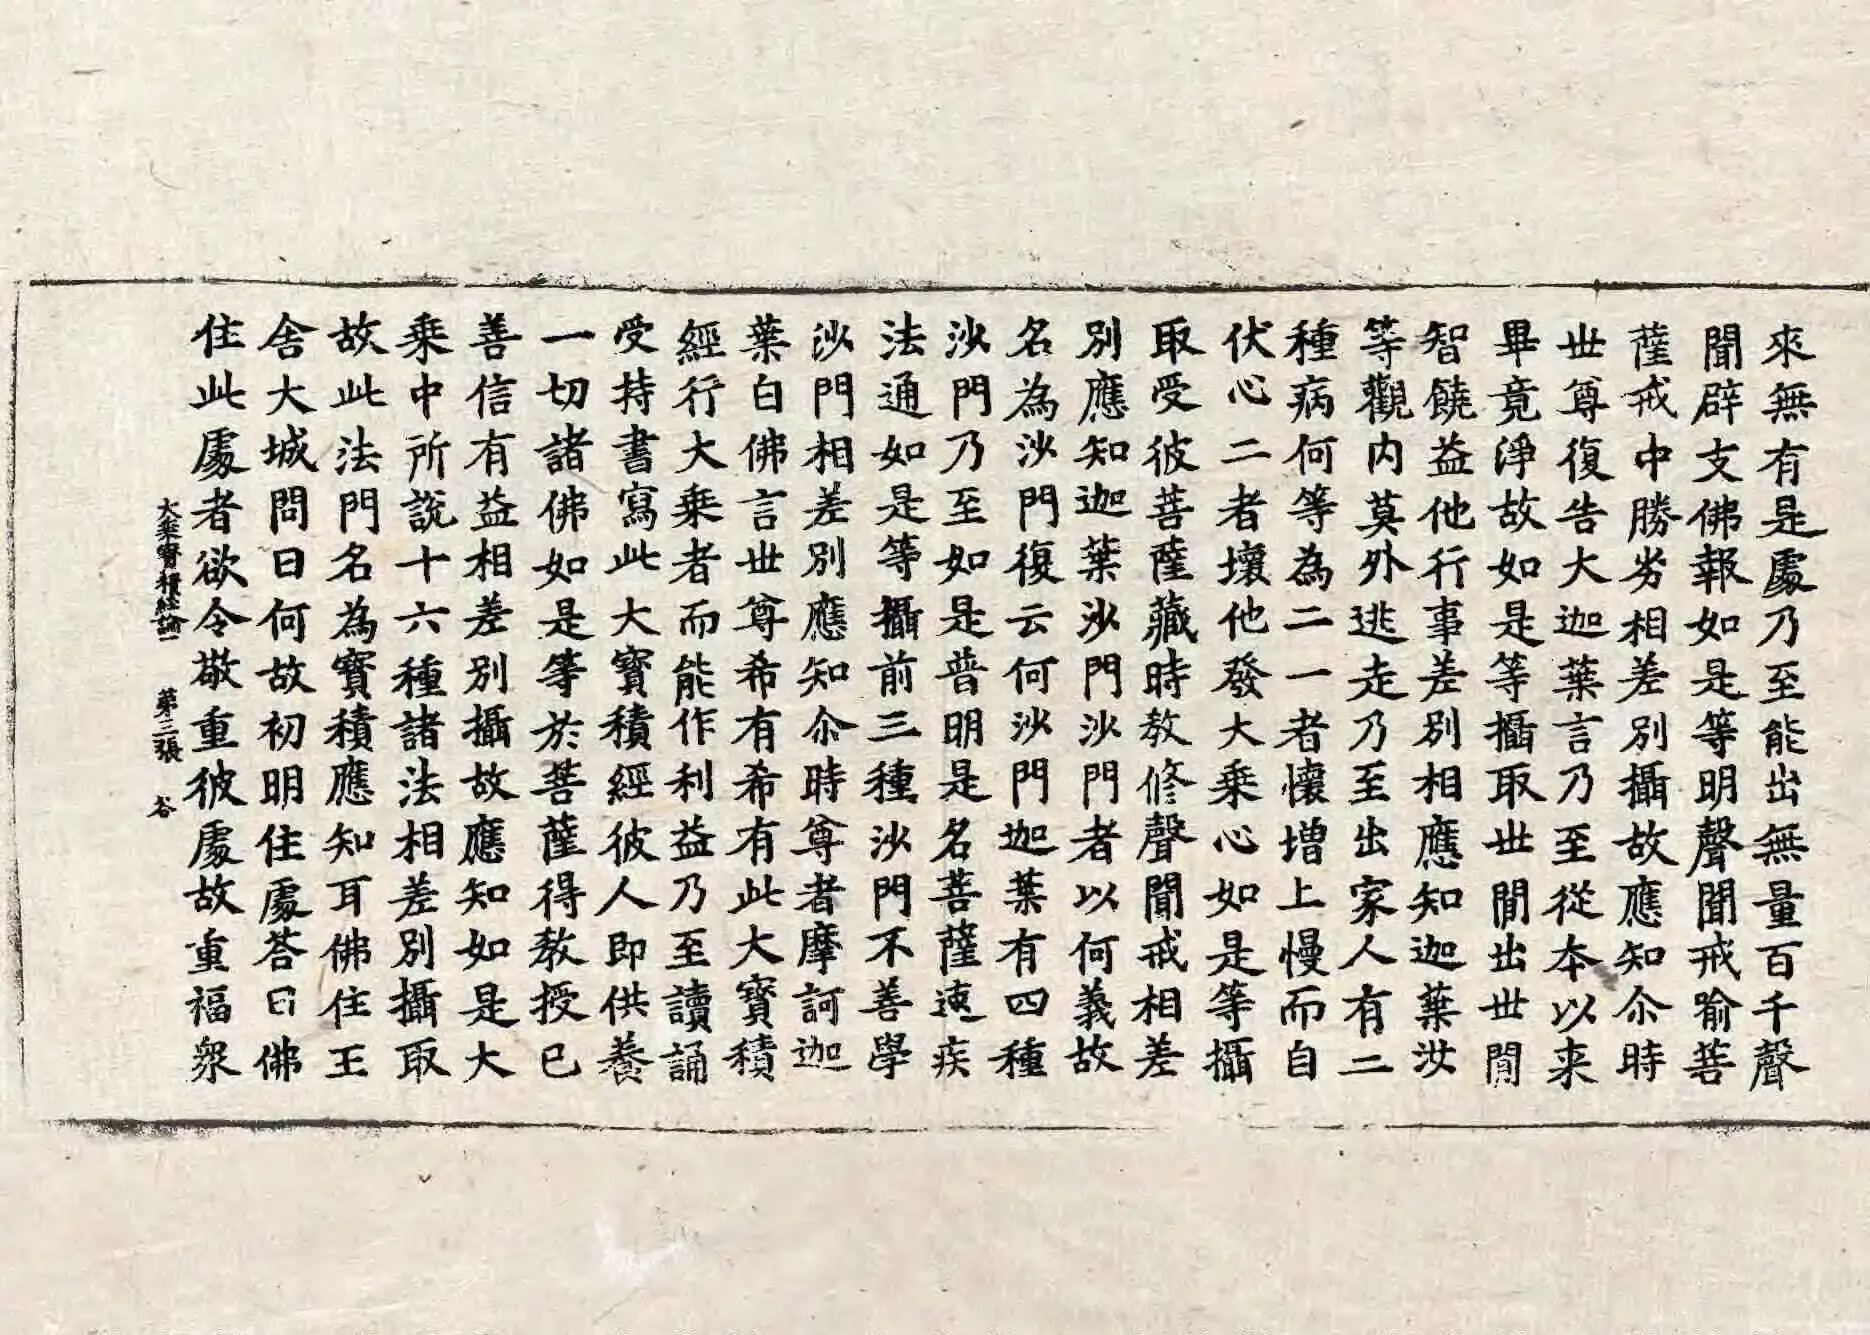 來無有是處乃至能出無量百千聲
聞辟支佛報如是等明聲聞戒喻菩
薩戒中勝劣相差別攝故應知尒時
世尊復告大迦葉言乃至從本以来
畢竟淨故如是等攝取世間出世間
智饒益他行事差別相應知迦葉汝
等觀内莫外逃走乃至出家人有二
種病何等為二一者懷增上慢而自
伏心二者壞他發大乘心如是等攝
取受彼菩薩藏時教修聲聞戒相差
別應知迦葉沙門沙門者以何義故
名為沙門復云何沙門迦葉有四種
沙門乃至如是普明是名菩薩速疾
法通如是等攝前三種沙門不善學
沙門相差別應知尒時尊者摩訶迦
葉白佛言世尊希有希有此大寶積
經行大乘者而能作利益乃至讀誦
受持書寫此大寶積經彼人即供養
一切諸佛如是等於菩薩得教授已
善信有益相差別攝故應知如是大
乘中所說十六種諸法相差別攝取
故此法門名為寶積應知耳佛住王
舍大城問曰何故初明住處荅曰佛
住此處者欲令敬重彼處故重福衆
大乘寶積經論一 第三張 谷